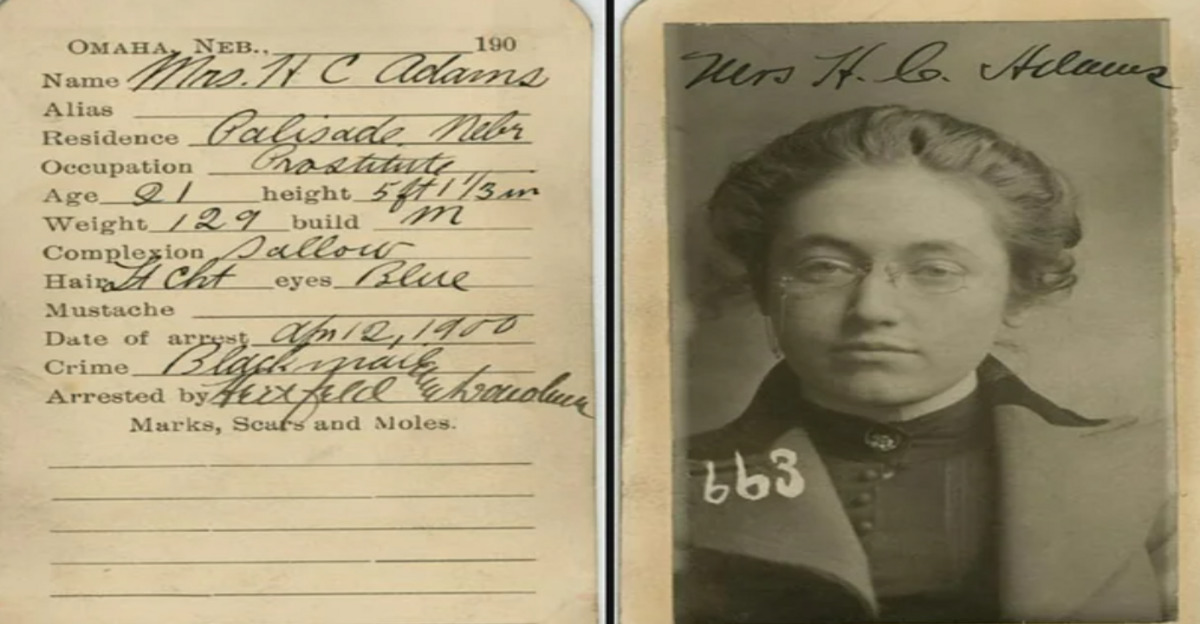 OMAHA, NEB., 190
Name Mrs. H C Adams
Alias
Residence Palisade Nebr
Occupation Prostitute
Age 21 height 5 ft 1 1/3 in
Weight 129 build M
Complexion Sallow
Hair Lt Cht eyes Blue
Mustache
Date of arrest Apr 12, 1900
Crime Blackmail
Arrested by
Marks, Scars and Moles.
Mrs H. C. Adams
663